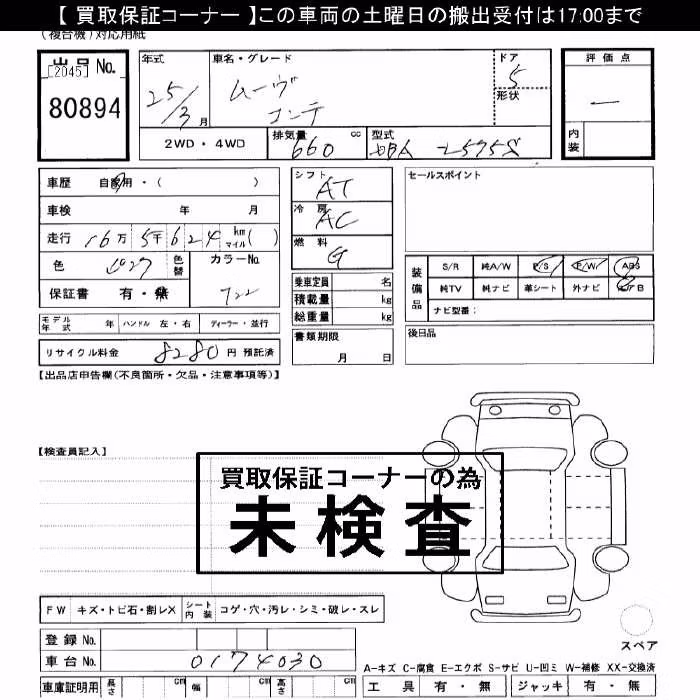 【 買取保証コーナー 】この車両の土曜日の搬出受付は17:00まで
(複合機)対応用紙
出品 No.
[2045]
80894
年式 車名・グレード ドア
25/3 月 ムーヴ コンテ 5
形状
2WD・4WD 排気量 660 cc 型式 DBA L575S
評価点
―
内装
車歴 自家用・( )
車検 年 月
走行 16万 5千 6 2 4 km マイル ( )
色 色替 カラーNo.
保証書 有・無 T22
シフト AT
冷房 AC
燃料 G
乗車定員 名
積載量 kg
総重量 kg
セールスポイント
装備品 S/R 純A/W P/S P/W ABS
純TV 純ナビ 革シート 外ナビ エアB
ナビ型番:
モデル年式 年 ハンドル 左・右 ディーラー・並行
リサイクル料金 8280 円 預託済
書類期限
月 日
後日品
【出品店申告欄(不良箇所・欠品・注意事項等)】
【検査員記入】
買取保証コーナーの為
未検査
FW キズ・トビ石・割レX シート内装 コゲ・穴・汚レ・シミ・破レ・スレ
登録 No.
車台 No. 0174030
スペア
A-キズ C-腐食 E-エクボ S-サビ U-凹ミ W-補修 XX-交換済
車庫証明用 長さ cm 幅 cm 高さ cm 工具 有・無 ジャッキ 有・無